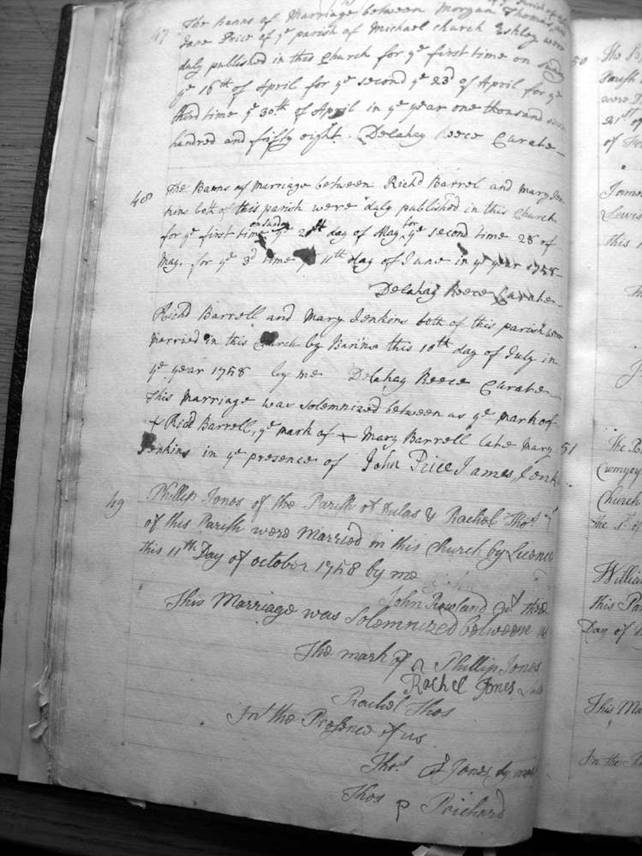 47 The Banns of Marriage between Morgan Thomas
Jane Price of ye parish of Michael church Eskley were
duly published in this Church for ye first time on Sunday
ye 16th of April for ye second ye 23d of April for ye
third time ye 30th of April in ye year one thousand seven
hundred and fifty eight. Delahay Reece Curate
48 The Banns of Marriage between Richd Barrel and Mary Jen
kins both of this parish were duly published in this Church
for ye first time on Sunday ye day of May, for ye second time 28 of
May. for ye 3d time ye 11th day of June in ye year 1758
Delahay Reece Curate
Richd Barrell and Mary Jenkins both of this parish were
married in this Church by Banns this 10th day of July in
ye year 1758 by me Delahay Reece Curate
This marriage was solemnized between us ye mark of
+ Richd Barrell, ye mark of + Mary Barrell late Mary
Jenkins in ye presence of John Price James Jenk
49 Phillip Jones of the Parish of Dulas & Rachel Thos
of this Parish were Married in this Church by Licence
this 11th Day of october 1758 by me
John Rowland
This Marriage was Solemnized between us
The mark of Phillip Jones
Rachel Jones Late
Rachel Thos
In the Presence of us
Thos Jones by
Thos p Prichard
50
51
The
Church
William
this Par
Day of
This Ma
In the